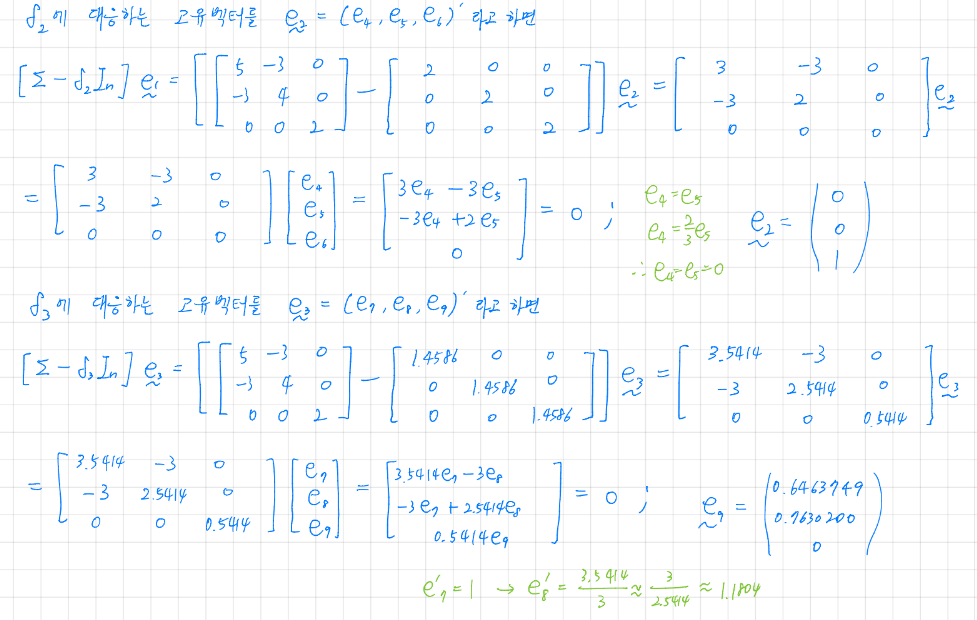 δ₂에 대응하는 고유벡터를 e₂ = (e₄, e₅, e₆)′ 라고 하면
[Σ − δ₂Iₙ] e₁ = [[5 −3 0; −3 4 0; 0 0 2] − [2 0 0; 0 2 0; 0 0 2]] e₂ = [3 −3 0; −3 2 0; 0 0 0] e₂
= [3 −3 0; −3 2 0; 0 0 0] [e₄; e₅; e₆] = [3e₄ − 3e₅; −3e₄ + 2e₅; 0] = 0 ; e₄ = e₅ e₄ = 2/3 e₅ ∴ e₄ = e₅ = 0 e₂ = (0; 0; 1)
δ₃에 대응하는 고유벡터를 e₃ = (e₇, e₈, e₉)′ 라고 하면
[Σ − δ₃Iₙ] e₃ = [[5 −3 0; −3 4 0; 0 0 2] − [1.4586 0 0; 0 1.4586 0; 0 0 1.4586]] e₃ = [3.5414 −3 0; −3 2.5414 0; 0 0 0.5414] e₃
= [3.5414 −3 0; −3 2.5414 0; 0 0 0.5414] [e₇; e₈; e₉] = [3.5414e₇ − 3e₈; −3e₇ + 2.5414e₈; 0.5414e₉] = 0 ; e₉ = (0.6463749; 0.7630200; 0)
e′₇ = 1 → e′₈ = 3.5414/3 ≈ 3/2.5414 ≈ 1.1804